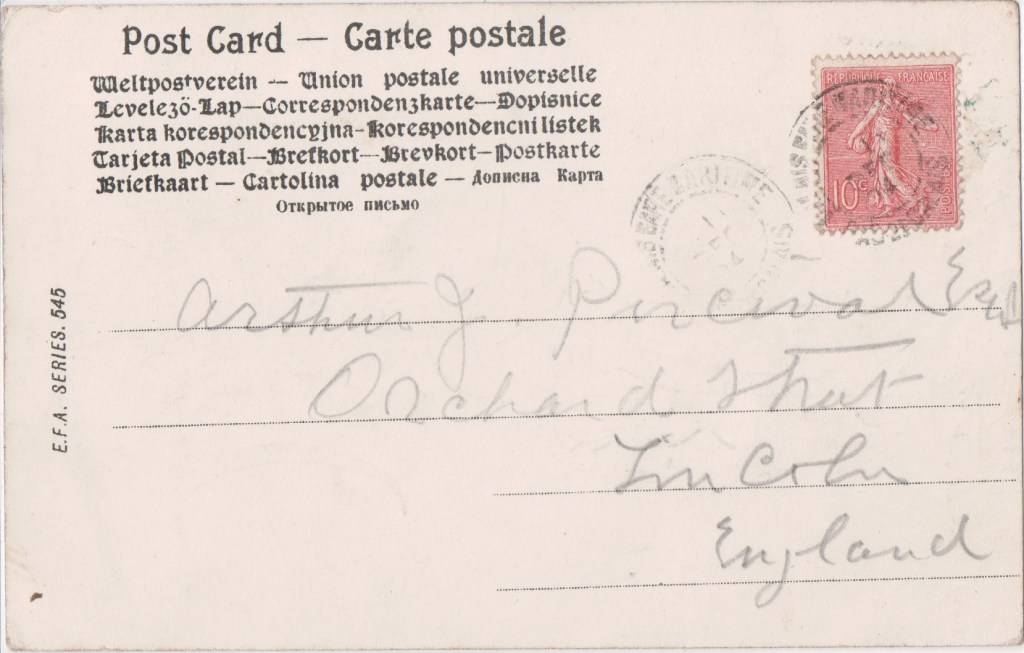 Post Card — Carte postale
Weltpostverein — Union postale universelle
Levelező-Lap—Correspondenzkarte—Dopisnice
Karta korespondencyjna-Korespondencni listek
Tarjeta Postal—Brefkort—Brevkort—Postkarte
Briefkaart — Cartolina postale — Дописна Карта
Открытое письмо
REPUBLIQUE FRANÇAISE
10c
POSTES
MARITIME
E.F.A. SERIES. 545
Arthur J. Percival Esq
Orchard Street
Lincoln
England